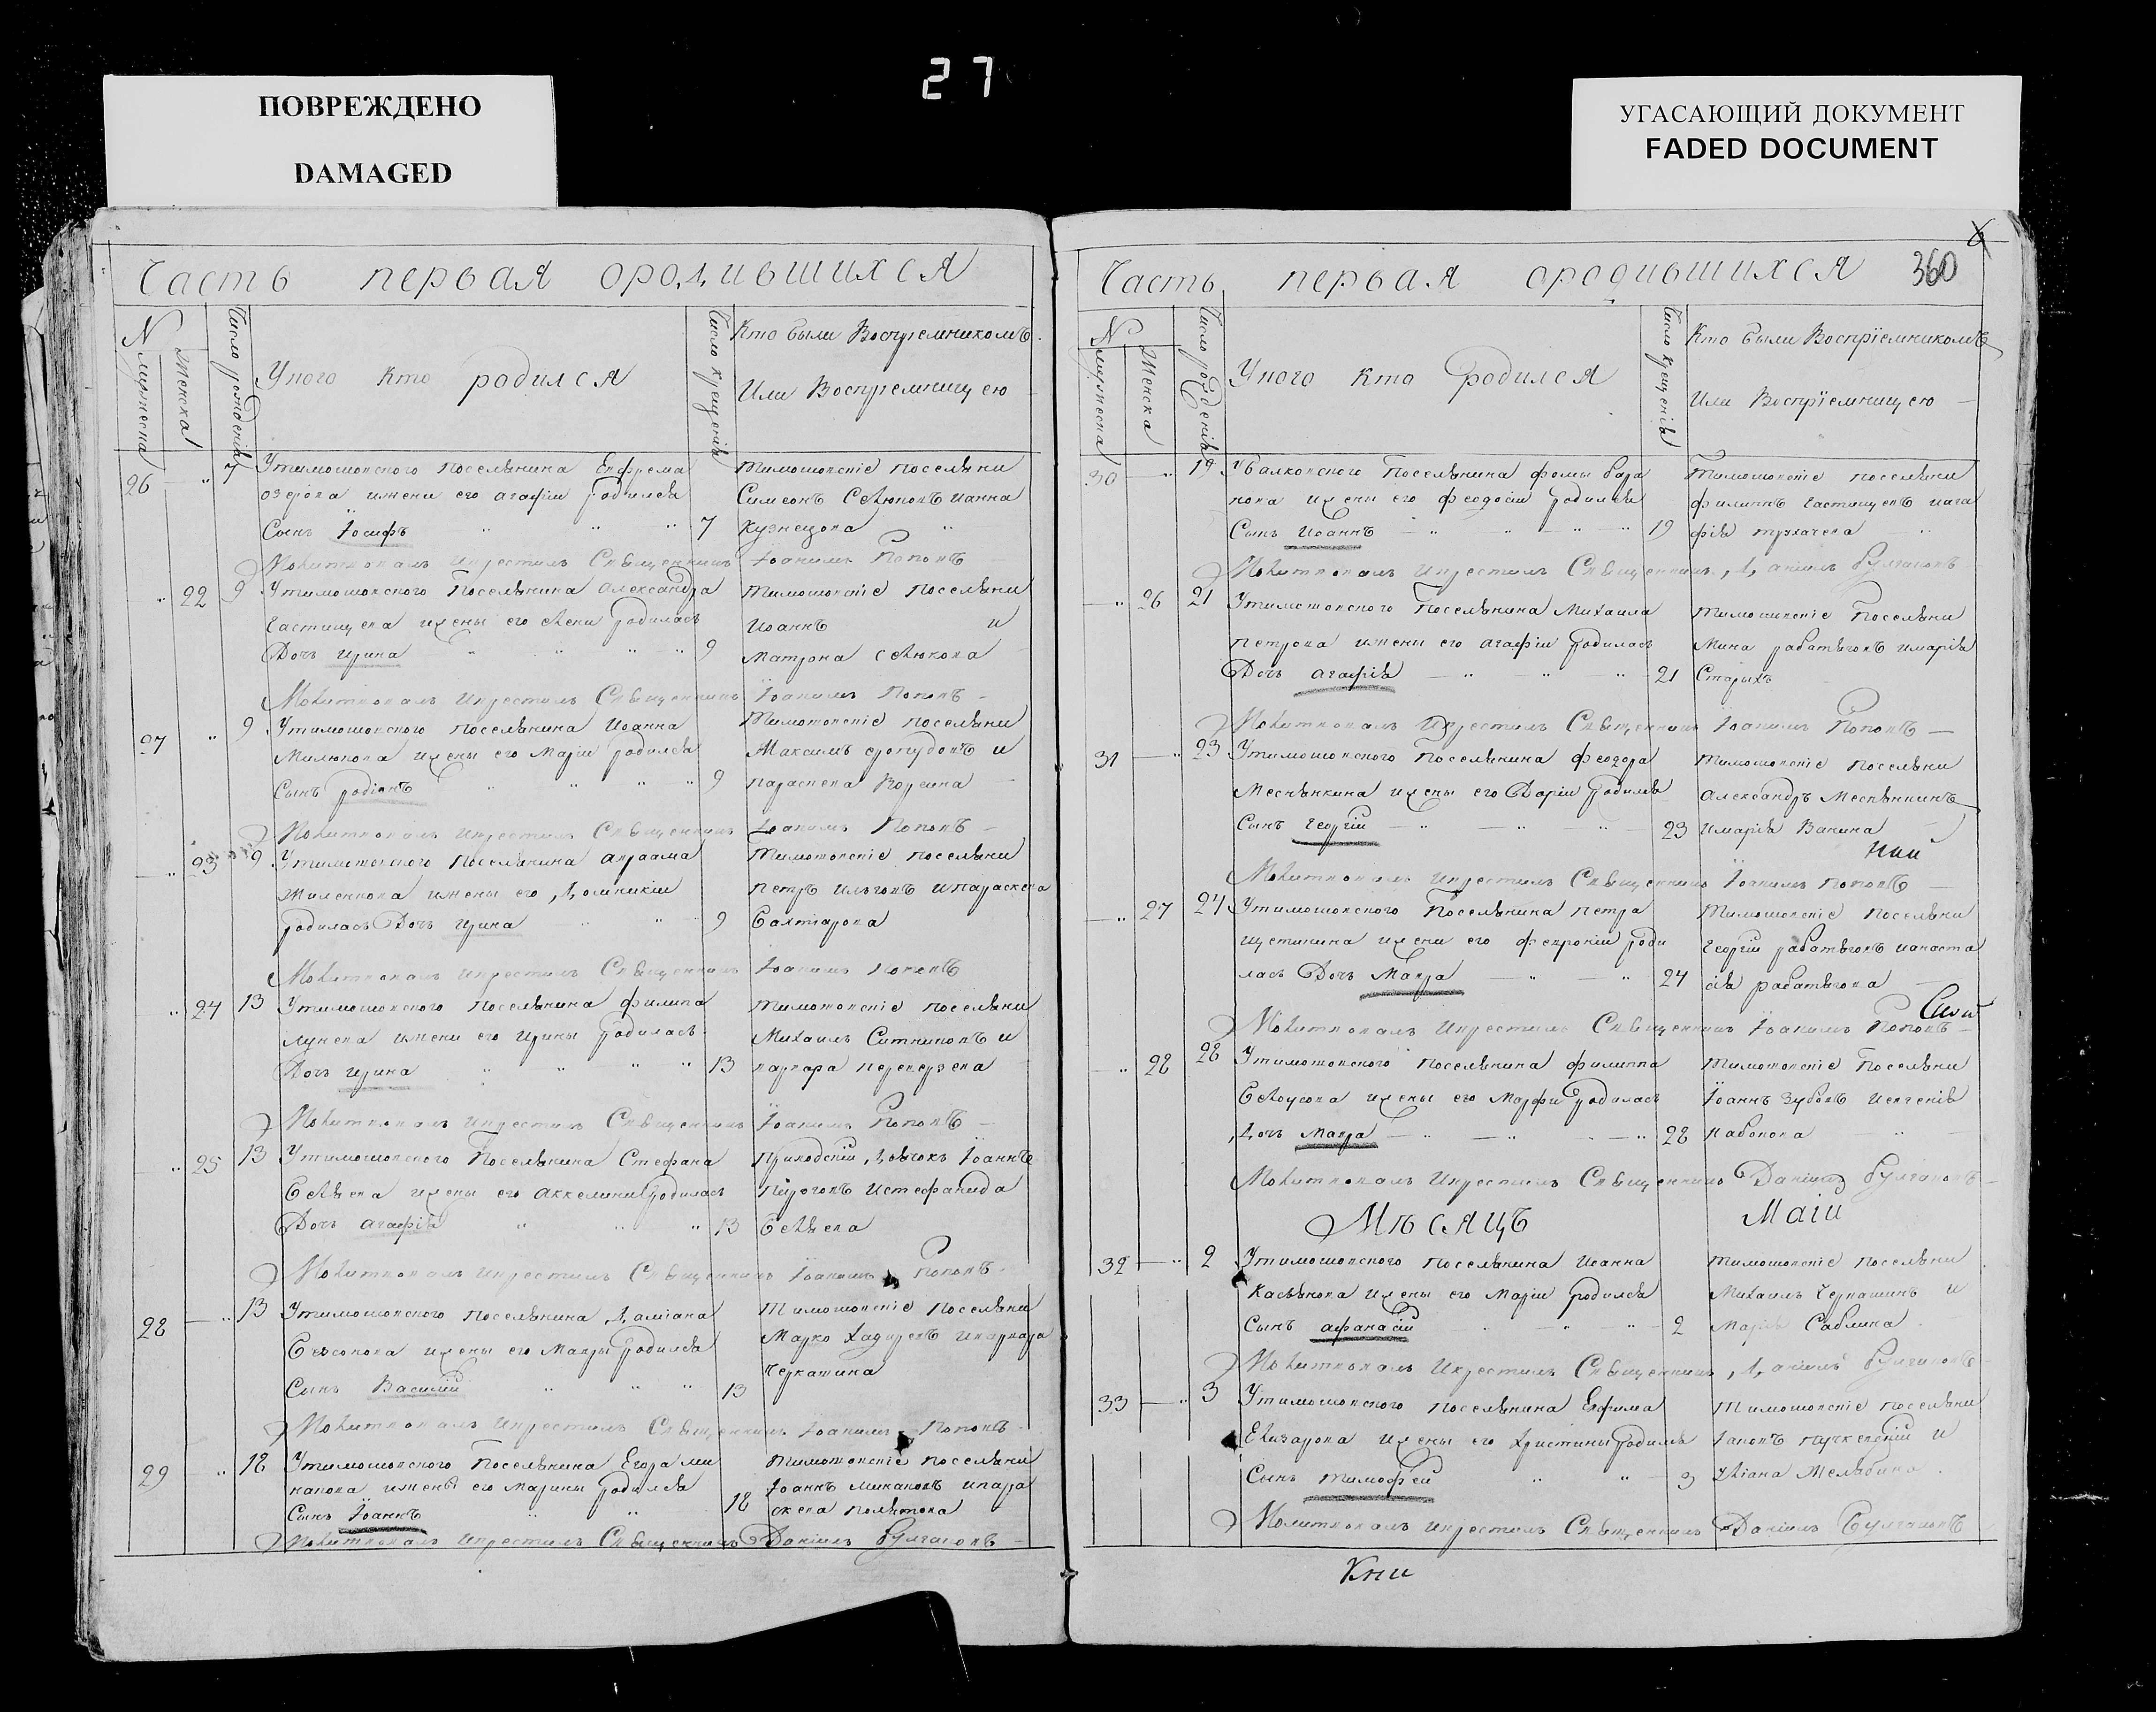 27
ПОВРЕЖДЕНО
DAMAGED
УГАСАЮЩИЙ ДОКУМЕНТ
FADED DOCUMENT
Часть первая ородившихся
N
мужеска
Женска
Число рожденія
Уного кто родился
Число крещенія
Кто были Воспріемникомъ
Или Воспріемницею
26 7 Утимошовского поселянина Евфрема
озерова ижены его агафіи родился
Сынъ Іосифъ 7
Тимошовскіе поселяни
Симеонъ ианна
Кузнецова
Молитвовалъ икрестилъ Священникъ Іоакимъ Поповъ
22 9 Утимошовского Поселянина Александра
Частищева ижены его елени родилась
Дочь Ирина 9
Тимошовскіе Поселяни
Иоаннъ и
Матрона
Молитвовалъ икрестилъ Священникъ Іоакимъ Поповъ
27 9 Утимошовского поселянина Иоанна
Милюкова ижены его Маріи родился
Сынъ родіонъ 9
Тимошовскіе поселяни
Максимъ и
параскева
Молитвовалъ икрестилъ Священникъ Іоакимъ Поповъ
23 9 Утимошовского Поселянина авраама
ижены его Домникіи
родилась Дочь Ирина 9
Тимошовскіе поселяни
петръ ипараскева
Бахтіарова
Молитвовалъ икрестилъ Священникъ Іоакимъ Поповъ
24 13 Утимошовского поселянина филипа
лунева ижены его Ирины родилась
Дочь Ирина 13
Тимошовскіе поселяни
Михаилъ Ситниковъ и
варвара
Молитвовалъ икрестилъ Священникъ Іоакимъ Поповъ
25 13 Утимошовского Поселянина Стефана
Беляева ижены его родилась
Дочь агафія 13
Приходскій Дьячокъ Іоаннъ
истефанида
Беляева
Молитвовалъ икрестилъ Священникъ Іоакимъ Поповъ
28 13 Утимошовского поселянина Даміана
Безсонова ижены его Мавры родился
Сынъ Василій 13
Тимошовскіе Поселяни
Марко иварвара
Черкашина
Молитвовалъ икрестилъ Священникъ Іоакимъ Поповъ
29 18 Утимошовского Поселянина Егора ми
ижены его Марины родился
Сынъ Іоаннъ 18
Тимошовскіе поселяни
Іоаннъ ипара
скева
Молитвовалъ икрестилъ Священникъ Даніилъ Булгаковъ
Часть первая ородившихся 360
N
мужеска
Женска
Число рожденія
Уного кто родился
Число крещенія
Кто были Воспріемникомъ
Или Воспріемницею
30 19 Поселянина фомы
ижены его феодосіи родился
Сынъ Иоаннъ 19
Тимошовскіе поселяни
филиппъ Частищевъ иага
фія
Молитвовалъ икрестилъ Священникъ Даніилъ Булгаковъ
26 21 Утимошовского Поселянина Михаила
Петрова ижены его агафіи родилась
Дочь агафія 21
Тимошовскіе Поселяни
Мина имарія
Старыхъ
Молитвовалъ икрестилъ Священникъ Іоакимъ Поповъ
31 23 Утимошовского Поселянина феодора
Меснянкина ижены его Даріи родился
Сынъ Георгій 23
Тимошовскіе поселяни
Александръ Меснянкинъ
имарія Ванина
Молитвовалъ икрестилъ Священникъ Іоакимъ Поповъ
27 24 Утимошовского Поселянина петра
щетинина ижены его февроніи роди
лась Дочь Мавра 24
Тимошовскіе Поселяни
Георгій ианаста
сія
Молитвовалъ икрестилъ Священникъ Іоакимъ Поповъ
28 28 Утимошовского поселянина филиппа
Белоусова ижены его Марфы родилась
Дочь Мавра 28
Тимошовскіе Поселяни
Іоаннъ Зубовъ иевгенія
Набокова
Молитвовалъ икрестилъ Священникъ Даніилъ Булгаковъ
Мѣсяцъ Маій
32 2 Утимошовского поселянина Иоанна
Касьянова ижены его Маріи родился
Сынъ афанасій 2
Тимошовскіе поселяни
Михаилъ Черкашинъ и
Марія Саблина
Молитвовалъ икрестилъ Священникъ Даніилъ Булгаковъ
33 3 Утимошовского поселянина Евфима
Елизарова ижены его Христины родился
Сынъ Тимофей 3
Тимошовскіе поселяни
Іаковъ и
Улiана
Молитвовалъ икрестилъ Священникъ Даніилъ Булгаковъ
Кни